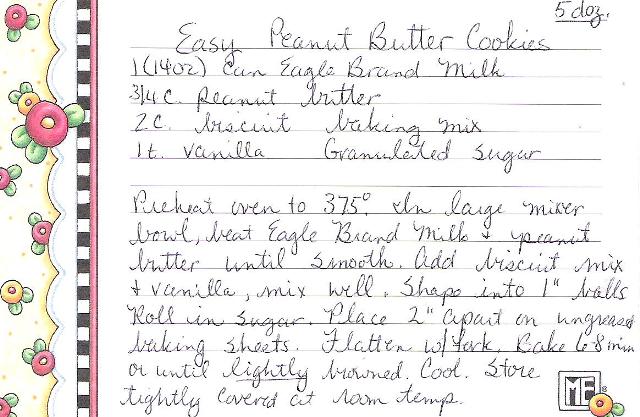 5 doz.
Easy Peanut Butter Cookies
1 (14oz) Can Eagle Brand Milk
3/4 c. peanut butter
2 c. biscuit baking mix
1 t. vanilla Granulated sugar
Preheat oven to 375°. In large mixer
bowl, beat Eagle Brand Milk + peanut
butter until smooth. Add biscuit mix
+ vanilla, mix well. Shape into 1" balls
Roll in sugar. Place 2" apart on ungreased
baking sheets. Flatten w/fork. Bake 6-8 min
or until lightly browned. Cool. Store
tightly covered at room temp.
ME